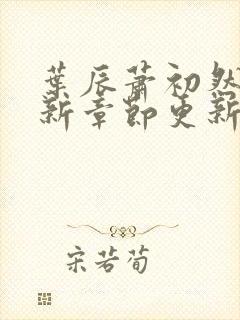 葉辰蕭初然
新章節更新
宋若荀